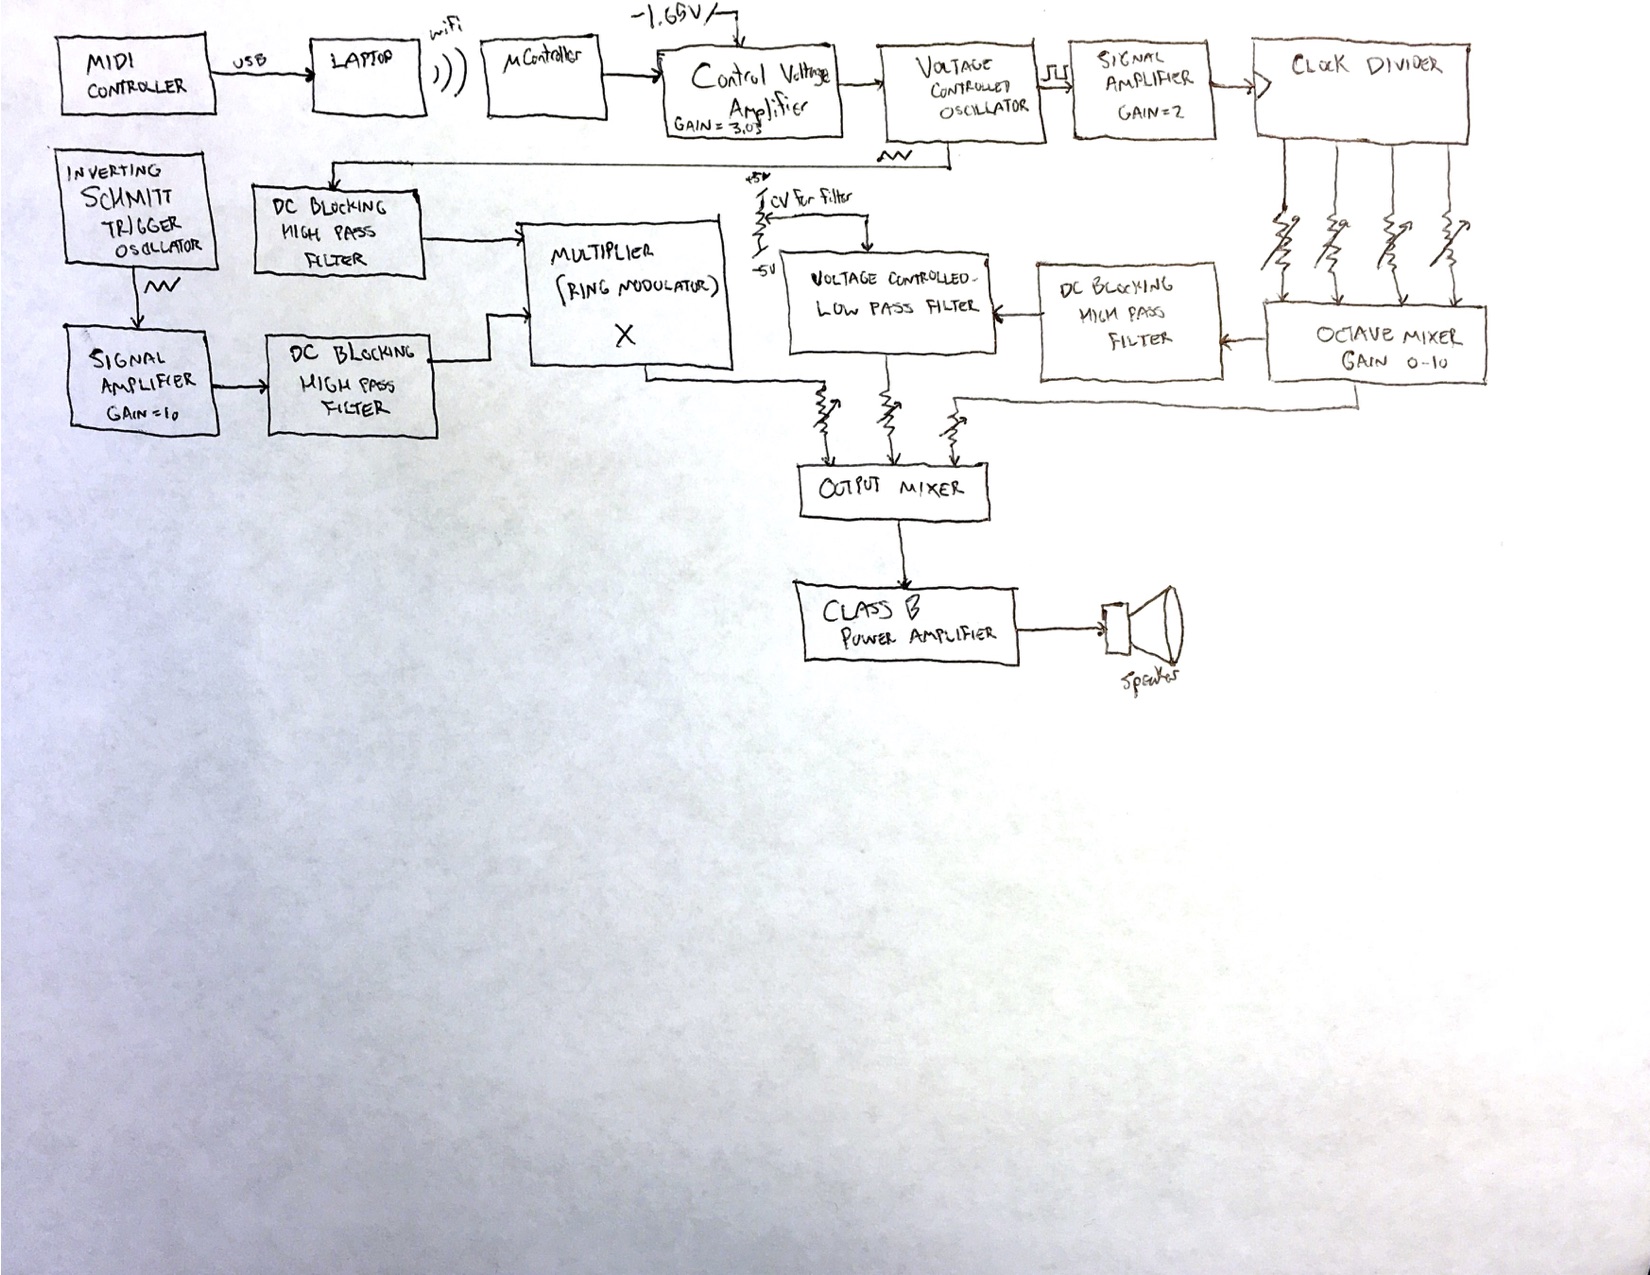 MIDI
CONTROLLER
USB
LAPTOP
wifi
μController
-1.65V
Control Voltage
Amplifier
GAIN = 3.03
VOLTAGE
CONTROLLED
OSCILLATOR
SIGNAL
AMPLIFIER
GAIN=2
CLOCK DIVIDER
INVERTING
SCHMITT
TRIGGER
OSCILLATOR
DC BLOCKING
HIGH PASS
FILTER
MULTIPLIER
(RING MODULATOR)
X
+5V
CV for filter
-5V
VOLTAGE CONTROLLED
LOW PASS FILTER
DC BLOCKING
HIGH PASS
FILTER
OCTAVE MIXER
GAIN 0-10
SIGNAL
AMPLIFIER
GAIN=10
DC BLOCKING
HIGH PASS
FILTER
OUTPUT MIXER
CLASS B
POWER AMPLIFIER
Speaker